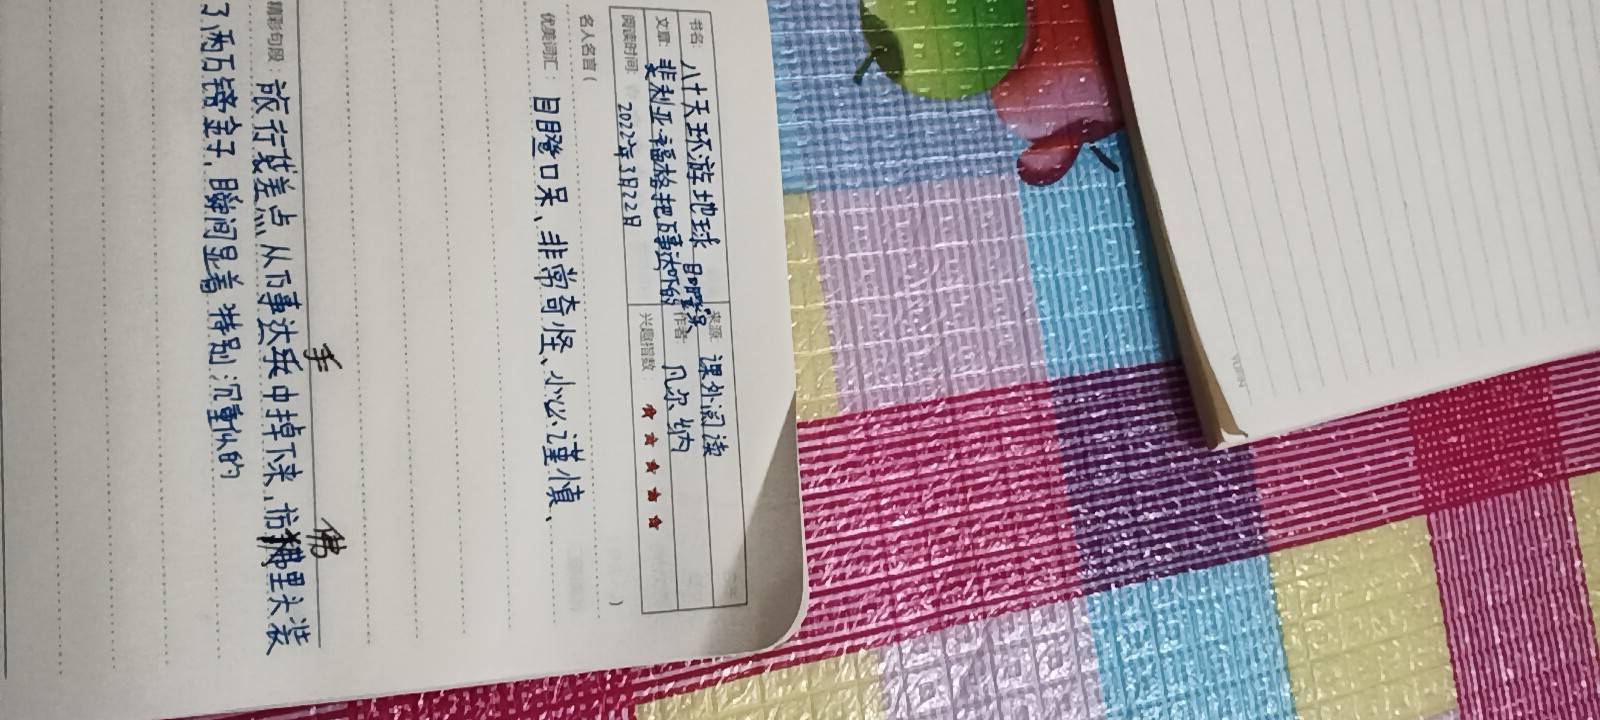 书名: 八十天环游地球 来源: 课外阅读
文章: 斐利亚·福格把万事达吓的目瞪口呆 作者: 凡尔纳
阅读时间: 2022年3月22日 兴趣指数 ★★★★★
名人名言( )
优美词汇: 目瞪口呆、非常奇怪、小心谨慎、
手 佛
精彩句段: 旅行袋差点从万事达手中掉下来,仿佛里头装
了两万镑金子,瞬间显着特别沉重似的